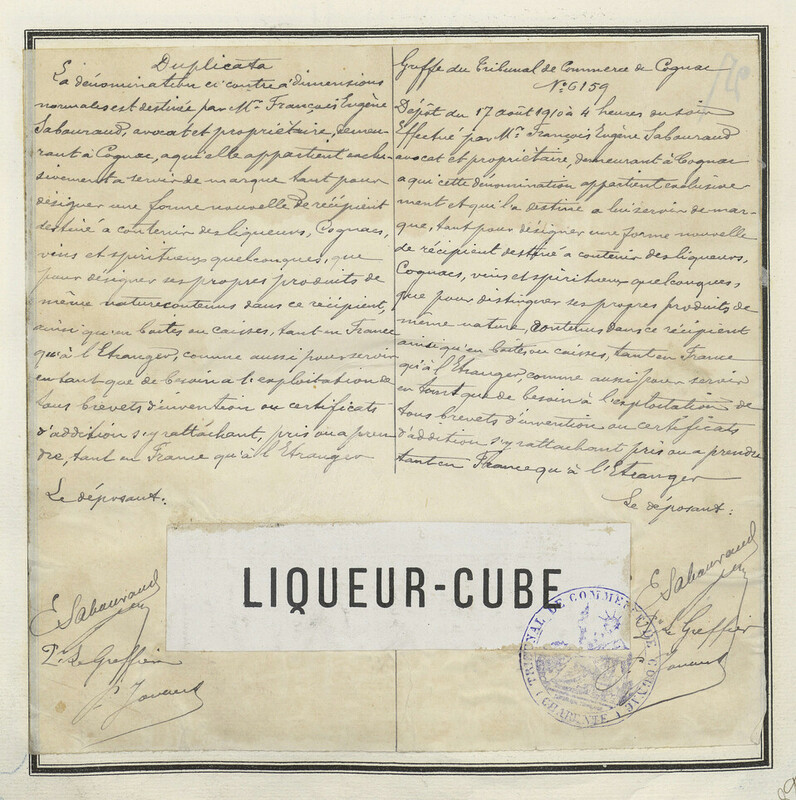 Duplicata
La dénomination ci contre à dimensions
normales est destinée par Mr. François Eugène
Sabouraud, avocat et propriétaire, demeu-
rant à Cognac, a qui elle appartient exclu-
sivement a servir de marque tant pour
désigner une forme nouvelle de récipient
destiné a contenir des liqueurs, Cognacs,
vins et spiritueux quelconques, que
pour désigner ses propres produits de
même nature contenus dans ce récipient,
ainsi qu'en boîtes ou caisses, tant en France
qu'à l'Etranger, comme aussi pour servir
en tant que de besoin a l'exploitation de
tous brevets d'invention ou certificats
d'addition s'y rattâchant, pris ou a pren
dre, tant en France qu'à l'Etranger
Le déposant:
E Sabouraud
Pr. Le Greffier
Greffe du Tribunal de Commerce de Cognac
No. 6159
Dépôt du 17 août 1910 à 4 heures du soir
Effectué par Mr. François Eugène Sabouraud
avocat et propriétaire, demeurant à Cognac
a qui cette dénomination appartient exclusive
ment et qui l'a destiné a lui servir de mar-
que, tant pour désigner une forme nouvelle
de récipient destiné à contenir des liqueurs,
Cognacs, vins et spiritueux quelconques,
que pour distinguer ses propres produits de
même nature, contenus dans ce récipient
ainsi qu'en boîtes ou caisses, tant en France
qu'à l'Etranger, comme aussi pour servir
en tant que de besoin à l'exploitation de
tous brevets d'invention ou certificats
d'addition s'y rattachant pris ou a prendre
tant en France qu'à l'Etranger
Le déposant:
E Sabouraud
Pr. Le Greffier
LIQUEUR-CUBE
TRIBUNAL DE COMMERCE DE COGNAC
(CHARENTE)